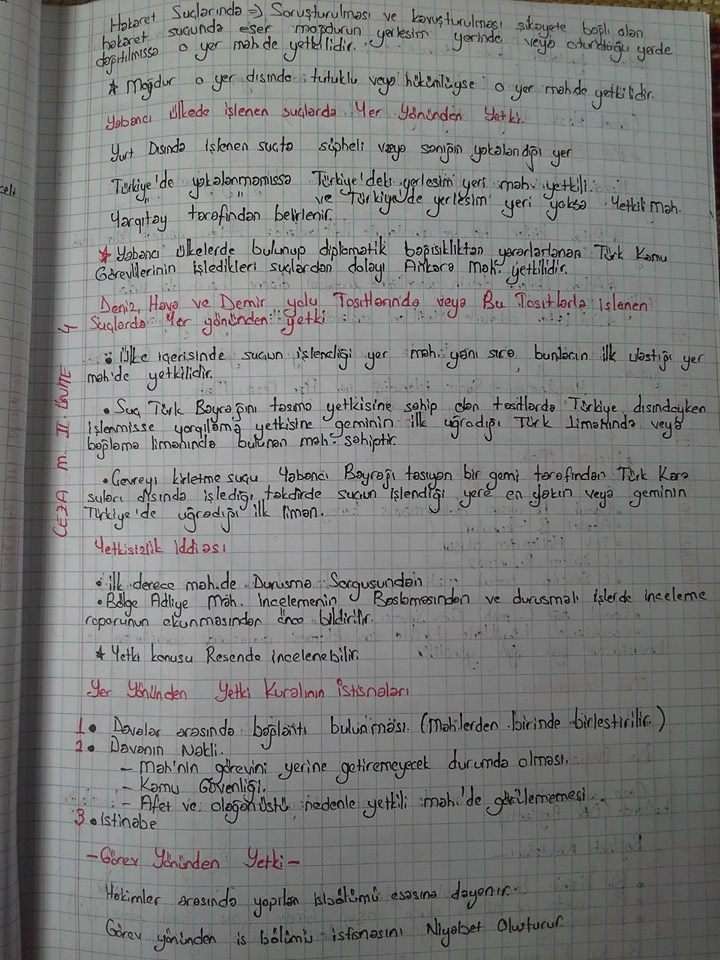 Hakaret Suçlarında => Soruşturulması ve kovuşturulması şikayete bağlı olan
hakaret suçunda eser mağdurun yerleşim yerinde veya oturduğu yerde
dağıtılmışsa o yer mah de yetkilidir.
* Mağdur o yer dışında tutuklu veya hükümlüyse o yer mah de yetkilidir.
Yabancı Ülkede işlenen suçlarda Yer Yönünden Yetki.
Yurt Dışında İşlenen suçta şüpheli veya sanığın yakalandığı yer
Türkiye'de yakalanmamışsa Türkiye'deki yerleşim yeri mah. yetkili.
" " ve Türkiye'de yerleşim yeri yoksa Yetkili mah.
Yargıtay tarafından belirlenir.
* Yabancı ülkelerde bulunup diplomatik bağışıklıktan yararlanan Türk Kamu
Görevlilerinin işledikleri suçlardan dolayı Ankara mah. yetkilidir.
Deniz, Hava ve Demir yolu Taşıtlarında veya Bu Taşıtlarla işlenen
Suçlarda Yer yönünden yetki
• Ülke içerisinde suçun işlendiği yer mah. yanı sıra, bunların ilk ulaştığı yer
mah'de yetkilidir.
• Suç Türk Bayrağını taşıma yetkisine sahip olan taşıtlarda Türkiye dışındayken
işlenmişse yargılama yetkisine geminin ilk uğradığı Türk limanında veya
bağlama limanında bulunan mah. sahiptir.
• Çevreyi kirletme suçu Yabancı Bayrağı taşıyan bir gemi tarafından Türk Kara
suları dışında işlediği takdirde suçun işlendiği yere en yakın veya geminin
Türkiye'de uğradığı ilk liman.
Yetkisizlik İddiası
• ilk derece mah.de Duruşma Sorgusundan
• Bölge Adliye Mah. incelemenin Başlamasından ve duruşmalı işlerde inceleme
raporunun okunmasından önce bildirilir.
* Yetki konusu Resende incelenebilir.
Yer Yönünden Yetki Kuralının İstisnaları
1• Davalar arasında bağlantı bulunması. (Mah.lerden birinde birleştirilir.)
2• Davanın Nakli.
- Mah'nin görevini yerine getiremeyecek durumda olması.
- Kamu Güvenliği.
- Afet ve olağanüstü nedenle yetkili mah.'de görülememesi.
3• İstinabe
- Görev Yönünden Yetki -
Hakimler arasında yapılan işbölümü esasına dayanır.
Görev yönünden iş bölümü istisnasını Niyabet Oluşturur
CEZA m. II. ÜNİTE 4